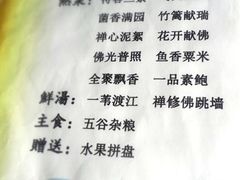 菌香满园 竹篱献瑞
禅心泥絮 花开献佛
佛光普照 鱼香粟米
全聚飘香 一品素鲍
鲜湯：一苇渡江 禅修佛跳墙
主食：五谷杂粮
赠送：水果拼盘